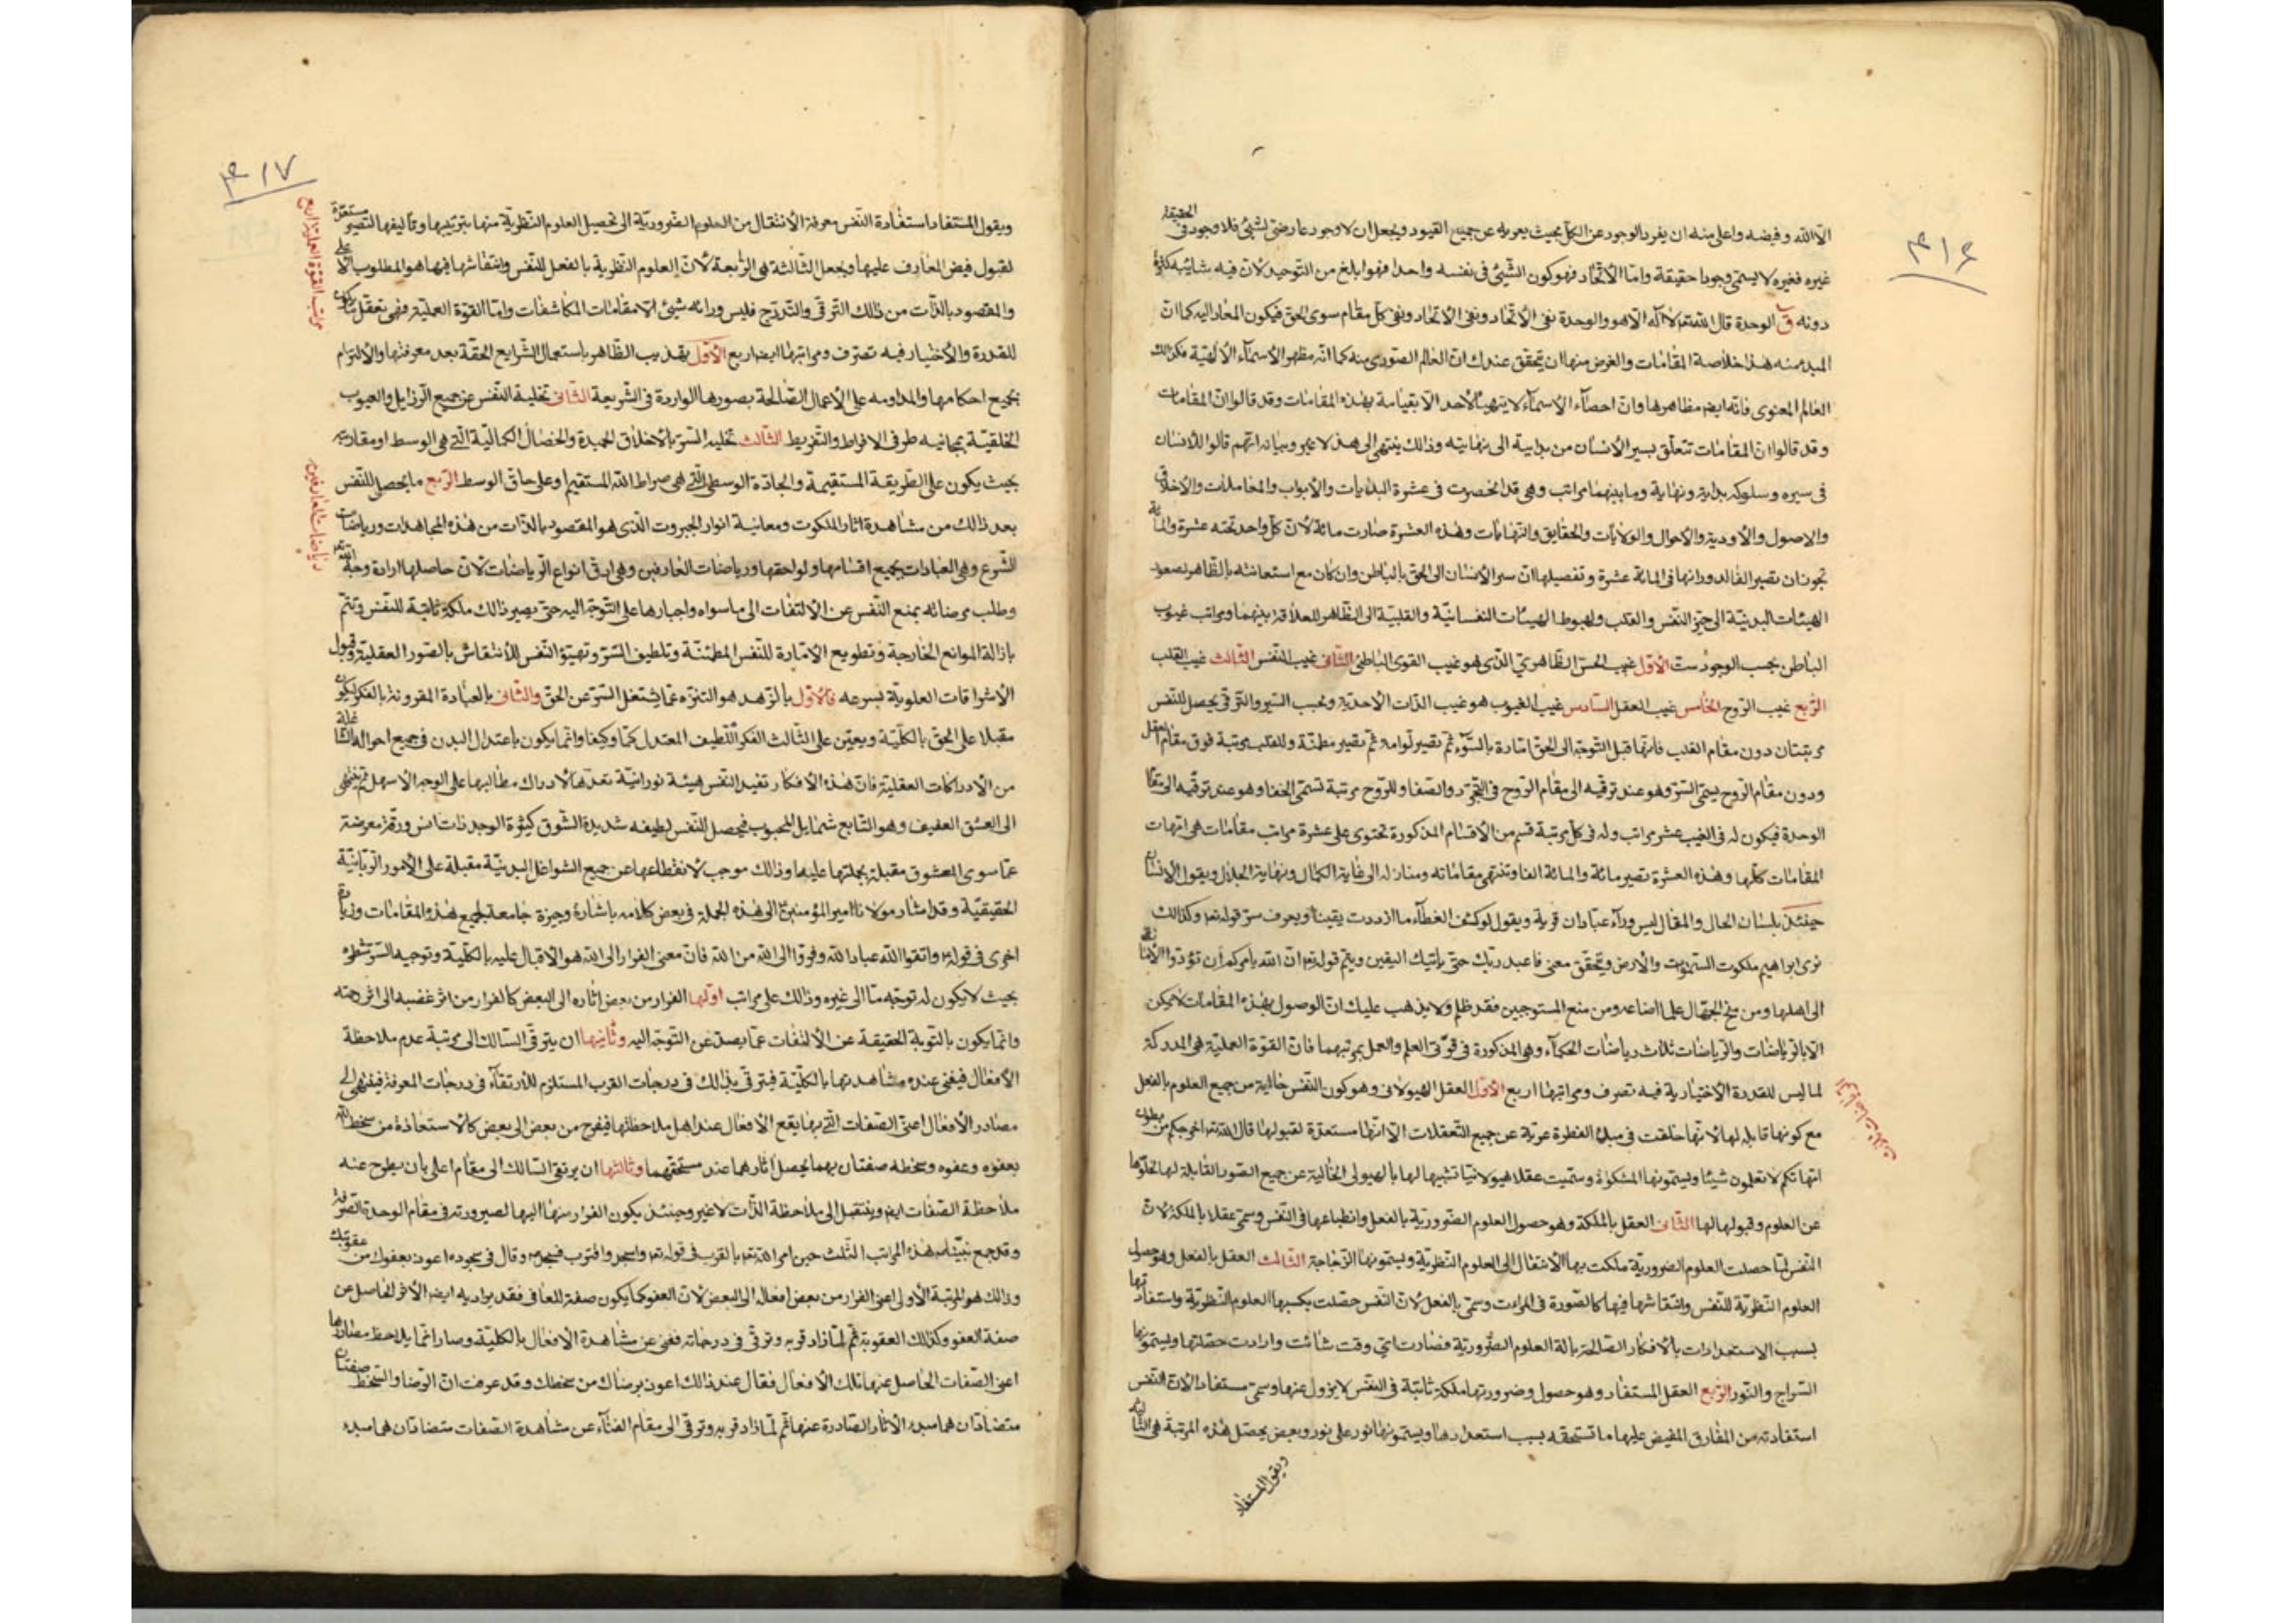 ۴۱۶
الا الله وفيضه واعلى منه ان يفرد الوجود عن الكل بحيث يعريه عن جميع القيود ويجعل ان لا وجود عارضى لشئ فلا وجود فى الحقيقة
غيره فغيره لا يسمى وجودا حقيقة واما الاتحاد فهو كون الشئ فى نفسه واحدا فهو ابلغ من التوحيد لان فيه شائبه كثرة
دونه الوحدة قال الله تعم لا اله الا هو والوحدة نفى الاتحاد ونفى الاتحاد ونفى كل مقام سوى الحق فيكون المعاد اليه كما ان
المبدء منه هذا خلاصة المقامات والغرض منها ان تحقق عندك ان العالم الصورى منه كما انه مظهر الاسمآء الالهية فكذلك
العالم المعنوى فانه ايضم مظاهرها وان احصآء الاسمآء لا يتهيأ لاحد الا بقيامة بهذه المقامات وقد قالوا ان المقامات
وقد قالوا ان المقامات تتعلق بسير الانسان من بدايته الى نهايته وذالك ينتهى الى هذا لا غير وبيانه انهم قالوا للانسان
فى سيره وسلوكه بداية ونهاية وما بينهما مراتب وهى قد انحصرت فى عشرة البدايات والابواب والمعاملات والاخلاق
والاصول والاودية والاحوال والولايات والحقايق والنهايات وهذه العشرة صارت مائة لان كل واحد تحته عشرة والمائة
تجوز ان تصير الفا لدورانها فى المائة عشرة وتفصيلها ان سير الانسان الى الحق بالباطن وان كان مع استعانته بالظاهر لصعود
الهيئات البدنية الى حيز النفس والقلب ولهبوط الهيئات النفسانية والقلبية الى الظاهر للعلاقة بينهما ومراتب غيوب
الباطن بحسب الوجود ست الاول غيب الحس الظاهرى الذى هو غيب القوى الباطنى الثانى غيب النفس الثالث غيب القلب
الرابع غيب الروح الخامس غيب العقل السادس غيب الغيوب هو غيب الذات الاحدية وبحسب السير والترقى يحصل للنفس
مرتبتان دون مقام القلب فانها قبل التوجه الى الحق امارة بالسوء ثم تصير لوامه ثم تصير مطمئنة وللقلب مرتبة فوق مقام العقل
ودون مقام الروح يسمى السر وهو عند ترقيه الى مقام الروح فى التجرد والصفا وللروح مرتبة تسمى الخفا وهو عند ترقيه الى مقام
الوحدة فيكون له فى الغيب عشر مراتب وله فى كل مرتبة قسم من الاقسام المذكورة تحتوى على عشرة مراتب مقامات هى امهات
المقامات كلها وهذه العشرة تصير مائة والمائة الفا وتنتهى مقاماته ومنازله الى غاية الكمال ونهاية الجلال ويقول الانسان
حينئذ بلسان الحال والمقال ليس ورآء عبادان قرية ويقول لو كشف الغطآء ما ازددت يقينا ويعرف سر قوله تعم وكذالك
نرى ابراهيم ملكوت السموات والارض ويتحقق معنى فاعبد ربك حتى ياتيك اليقين ويتم قوله تعم ان الله يامركم ان تؤدوا الامانات
الى اهلها ومن منح الجهال علما اضاعه ومن منع المستوجبين فقد ظلم ولا يذهب عليك ان الوصول بهذه المقامات لا يمكن
الا بالرياضات والرياضات ثلاث رياضات الحكمآء وهى المذكورة فى قوتى العلم والعمل بمرتبهما فان القوة العملية هى المدركة
لما ليس للقدرة الاختيارية فيه تصرف ومراتبها اربع الاول العقل الهيولانى وهو كون النفس خالية من جميع العلوم بالفعل
مع كونها قابله لها لانها خلقت فى مبدء الفطرة عرية عن جميع التعقلات الا انها مستعدة لقبولها قال الله تعم اخرجكم من بطون
امهاتكم لا تعلمون شيئا ويسمونها المشكوة وسميت عقلا هيولانيا تشبيها لها بالهيولى الخالية عن جميع الصور القابلة لها لخلوها
عن العلوم وقبولها لها الثانى العقل بالملكة وهو حصول العلوم الضرورية بالفعل وانطباعها فى النفس وسمى عقلا بالملكة لان
النفس لما حصلت العلوم الضرورية ملكت بها الانتقال الى العلوم النظرية ويسمونها الزجاجة الثالث العقل بالفعل وهو حصول
العلوم النظرية للنفس وانتقاشها فيها كالصورة فى المرءات وسمى بالفعل لان النفس حصلت بكسبها العلوم النظرية واستفادتها
بسبب الاستعدادات بالافكار الصالحة بالة العلوم الضرورية فصارت اى وقت شائت وارادت حصلتها ويسمونها
السراج والنور الرابع العقل المستفاد وهو حصول وضرورتها ملكة ثابتة فى النفس لا يزول عنها وسمى مستفاد الان النفس
استفادته من المفارق المفيض عليها ما تستحقه بسبب استعدادها ويسمونها نور على نور وبعض يحصل هذه المرتبة هى الثالثة
ويقول المستفاد
۴۱۷
ويقول المستفاد استفادة النفس معرفة الانتقال من العلوم الضرورية الى تحصيل العلوم النظرية منها بترتيبها وتاليفها لتصير مستعدة
لقبول فيض المعارف عليها ويجعل الثالثة هى الرابعة لان العلوم النظرية بالفعل للنفس وانتقاشها فيها هو المطلوب الاعلى
والمقصود بالذات من ذالك الترقى والتدرج فليس ورائه شئ الا مقامات المكاشفات واما القوة العملية فهى تعقل ما يكون
مراتب القوة العملية اربع
للقدرة والاختيار فيه تصرف ومراتبها ايضم اربع الاول تهذيب الظاهر باستعمال الشرايع الحقة بعد معرفتها والالتزام
بجميع احكامها والمداومه على الاعمال الصالحة بصورها الواردة فى الشريعة الثانى تخلية النفس عن جميع الرذايل والعيوب
الخلقية بمجانبة طرفى الافراط والتفريط الثالث تحلية السر بالاخلاق الحميدة والخصال الكمالية التى هى الوسط او مقاربته
بحيث يكون على الطريقة المستقيمة والجادة الوسطى التى هى صراط الله المستقيم او على حاق الوسط الرابع ما يحصل للنفس
رياضات العارفين
بعد ذالك من مشاهدة اثار الملكوت ومعاينة انوار الجبروت الذى هو المقصود بالذات من هذه المجاهدات ورياضات
الشرع وهى العبادات بجميع اقسامها ولواحقها ورياضات العارفين وهى ادق انواع الرياضات لان حاصلها ارادة وجه الله تعم
وطلب مرضاته بمنع النفس عن الالتفات الى ما سواه واجبارها على التوجه اليه حتى يصير ذالك ملكة ثابتة للنفس وتتم
بازالة الموانع الخارجية وتطويع الامارة للنفس المطمئنة وتلطيف السر وتهيؤ النفس للانتقاش بالصور العقلية وقبول
الاشراقات العلوية بسرعه فالاول بالزهد هو التنزه عما يشتغل السر عن الحق والثانى بالعبادة المقرونة بالفكر ليكون
مقبلا على الحق بالكلية ويعين على الثالث الفكر اللطيف المعتدل كما وكيفا وانما يكون باعتدال البدن فى جميع احواله
من الادراكات العقلية فان هذه الافكار تفيد النفس هيئة نورانية تعدها لادراك مطالبها على الوجه الاسهل ثم ينتهى
الى العشق العفيف وهو التابع شمايل المحبوب فيحصل للنفس لطيفه شديدة الشوق كثيرة الوجد ذات انس ورقة معرضة
عما سوى المعشوق مقبلة بجملتها عليها وذالك موجب لانقطاعها عن جميع الشواغل البدنية مقبلة على الامور الربانية
الحقيقية وقد اشار مولانا امير المؤمنين الى هذه الجملة فى بعض كلامه باشارة وجيزة جامعة لجميع هذه المقامات وزيادة
اخرى فى قوله واتقوا الله عباد الله وفروا الى الله من الله فان معنى الفرار الى الله هو الاقبال عليه بالكلية وتوجيه السر شطره
بحيث لا يكون له توجه ما الى غيره وذالك على مراتب اولها الفرار من بعض اثاره الى البعض كالفرار من اثر غضبه الى اثر رحمته
وانما يكون بالتوبة الحقيقة عن الالتفات عما يصد عن التوجه اليه وثانيها ان يترقى السالك الى مرتبة عدم ملاحظة
الافعال فيفنى عنده مشاهدتها بالكلية فيترقى بذالك فى درجات القرب المستلزم للارتقآء فى درجات المعرفة فينتهى الى
مصادر الافعال اعنى الصفات التى بها يقع الافعال عند اهل ملاحظتها فيفرح من بعض الى بعض كالاستعاذة من سخط الله
بعفوه وعفوه وسخطه صفتان بهما يحصل اثارهما عند مستحقهما وثالثها ان يرتقى السالك الى مقام اعلى بان يطرح عنه
ملاحظة الصفات ايضم وينتقل الى ملاحظة الذات لا غير وحينئذ يكون الفرار منها اليها لصيرورته فى مقام الوحدة الصرفة
وقد جمع نبينا هذه المراتب الثلث حين امر الله تعم بالقرب فى قوله تعم واسجد واقترب فسجد وقال فى سجوده اعوذ بعفوك من عقوبتك
وذالك هو المرتبة الاولى اعنى الفرار من بعض افعاله الى البعض لان العفو كما يكون صفة للعافى فقد يراد به ايضم الاثر الحاصل عن
صفة العفو وكذالك العقوبة ثم لما زاد قربه وترقى فى درجاته فغنى عن مشاهدة الافعال بالكلية وصار انما يلاحظ مصادرها
اعنى الصفات الحاصل عنها تالك الافعال فقال عند ذالك اعوذ برضاك من سخطك وقد عرفت ان الرضا والسخط صفتان
متضادتان هما مبدء الاثار الصادرة عنها ثم لما زاد قربه وترقى الى مقام الفنآء عن مشاهدة الصفات متضادتان هما مبدء